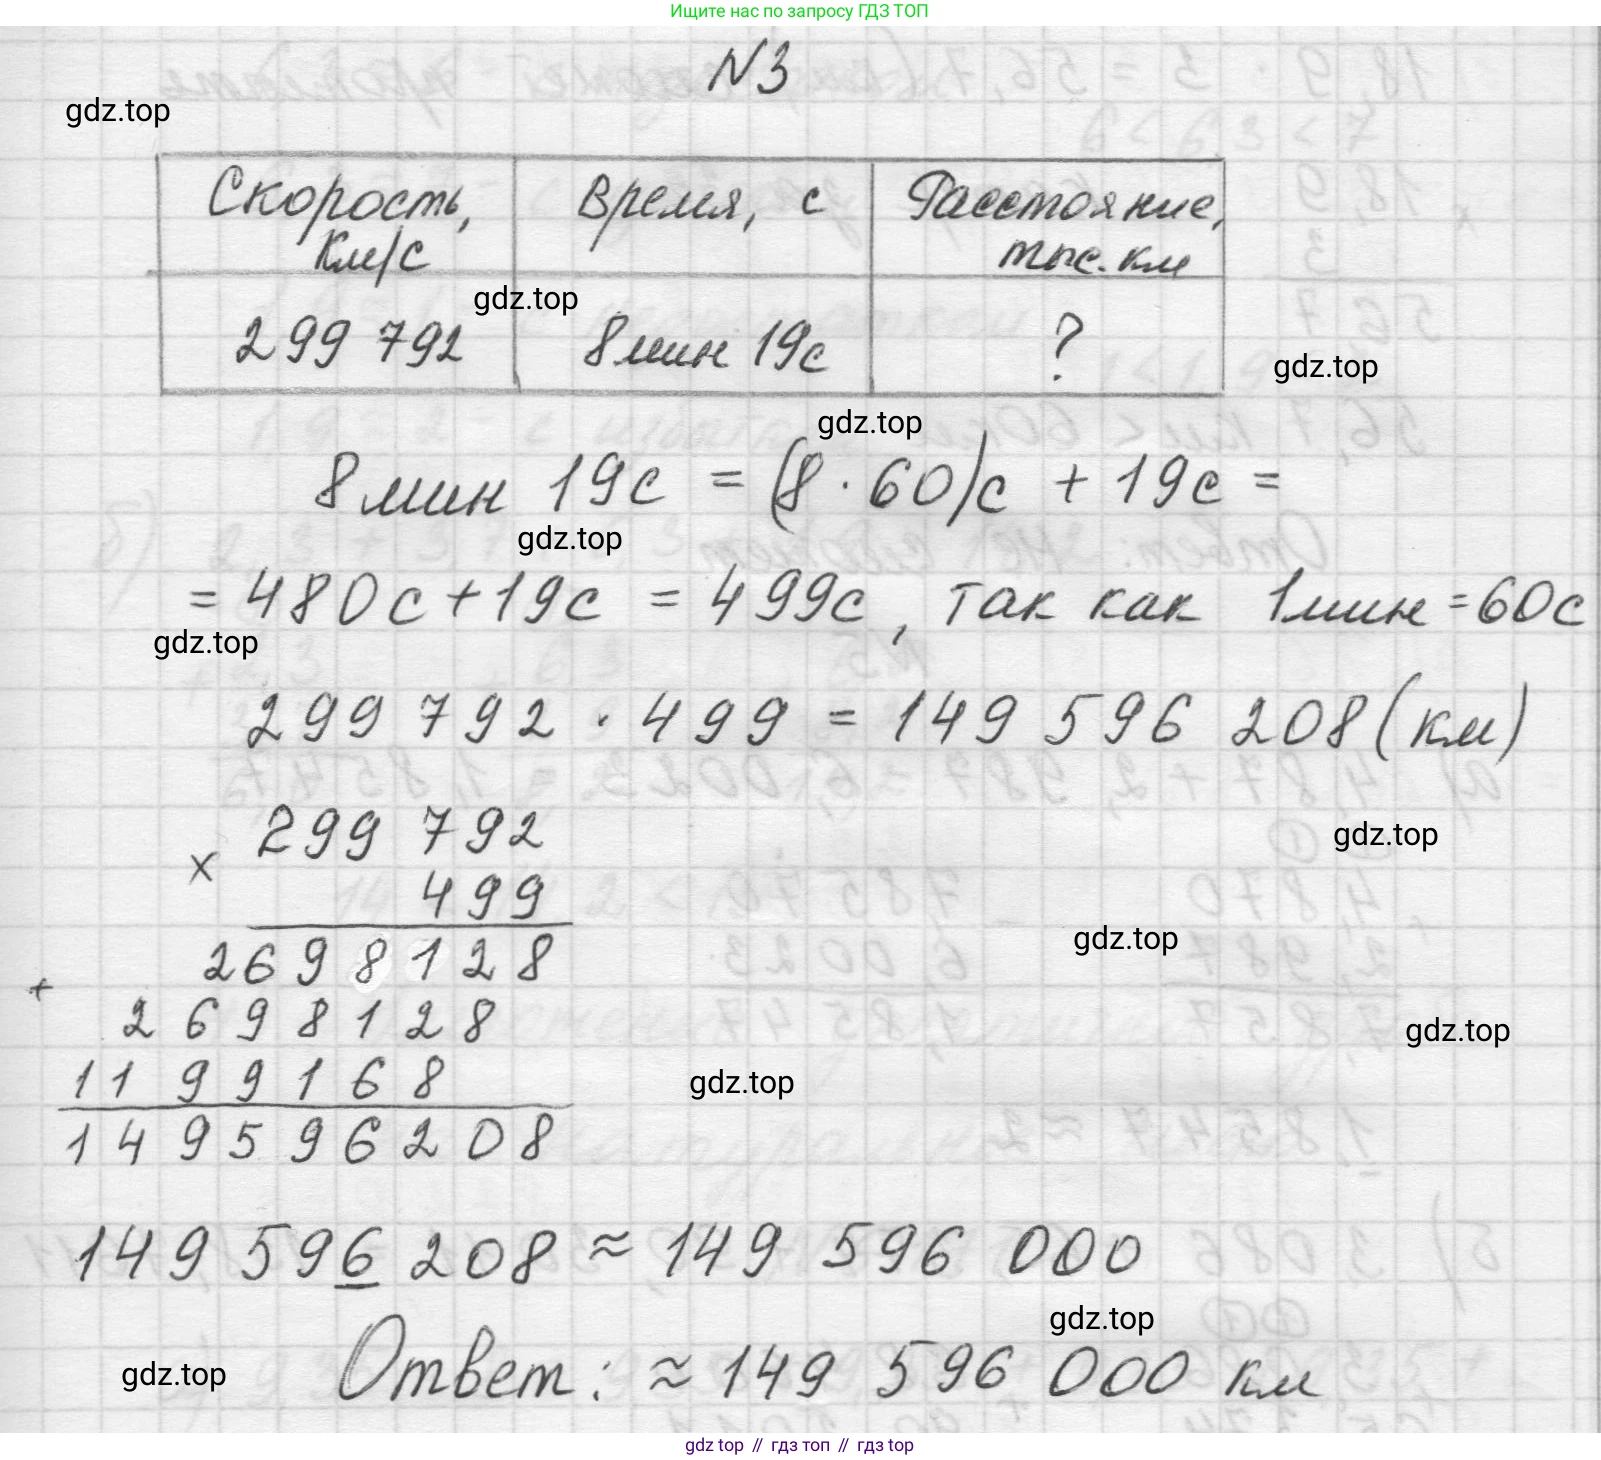 Ищите нас по запросу ГДЗ ТОП
N3
gdz.top
Скорость, км/с
Время, с
Расстояние, тыс. км
gdz.top
299 792
8мин 19с
?
gdz.top
gdz.top
8мин 19с = (8 · 60)с + 19с =
gdz.top
= 480с + 19с = 499с, так как 1мин = 60с
gdz.top
299 792 · 499 = 149 596 208 (км)
299 792
gdz.top
×
499
2698128
gdz.top
+
2698128
gdz.top
1199168
gdz.top
149596208
149 596 208 ≈ 149 596 000
gdz.top
Ответ: ≈ 149 596 000 км
gdz.top
gdz top // гдз топ // gdz top